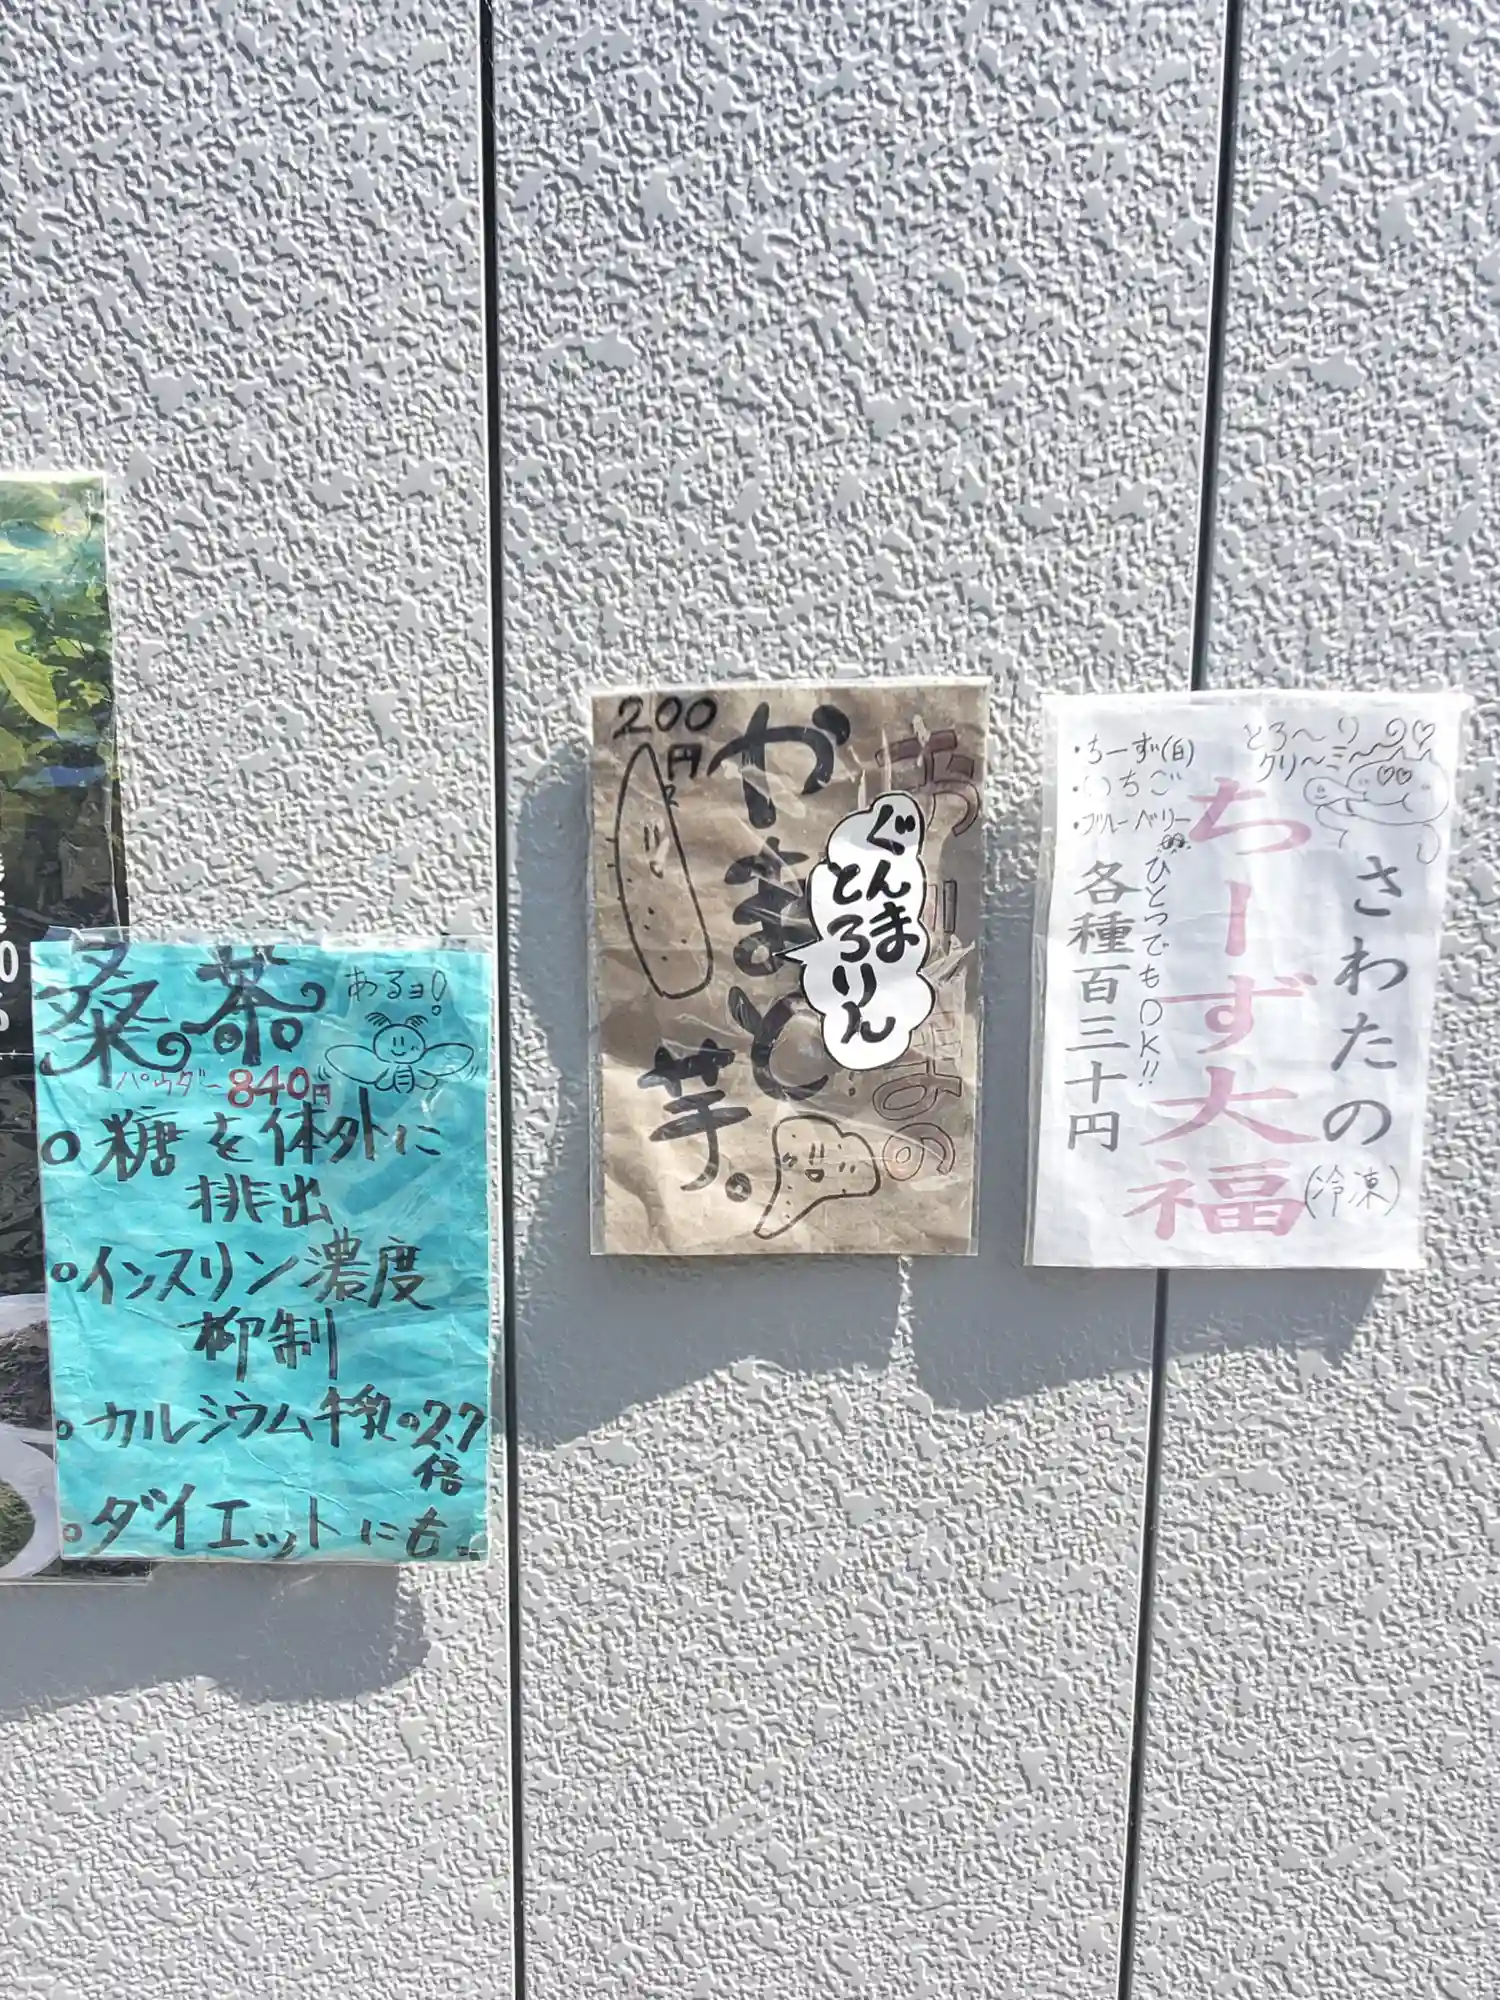 桑茶
あるヨ!
パウダー 840円
糖を体外に
排出
インスリン濃度
抑制
カルシウム牛乳の27
倍
ダイエットにも。
200
円
やまと
芋。
ぐんま
とろりん
とろ〜り
クリ〜ミ〜
さわたの
ちーず大福
(冷凍)
・ちーず(白)
・いちご
・ブルーベリー
ひとつでもOK!!
各種百三十円